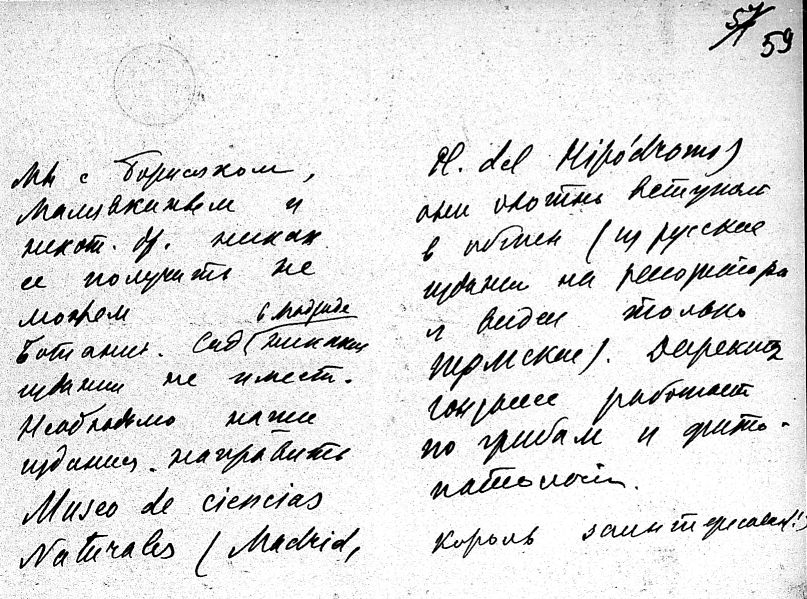 57
59
мы с Борисяком,
Малявкиным и
некот. др. никак
ее получить не
можем
в Мадриде
Ботанич. сад (никаких
издании не имеет.
Необходимо наши
издания направить
Museo de ciencias
Naturales (Madrid,
H. del Hipódromo)
они охотно вступят
в обмен (из русские
издании на
я видел только
Пермские).
работает
по грибам и фито-
патологии.
Король заинтересован!!)